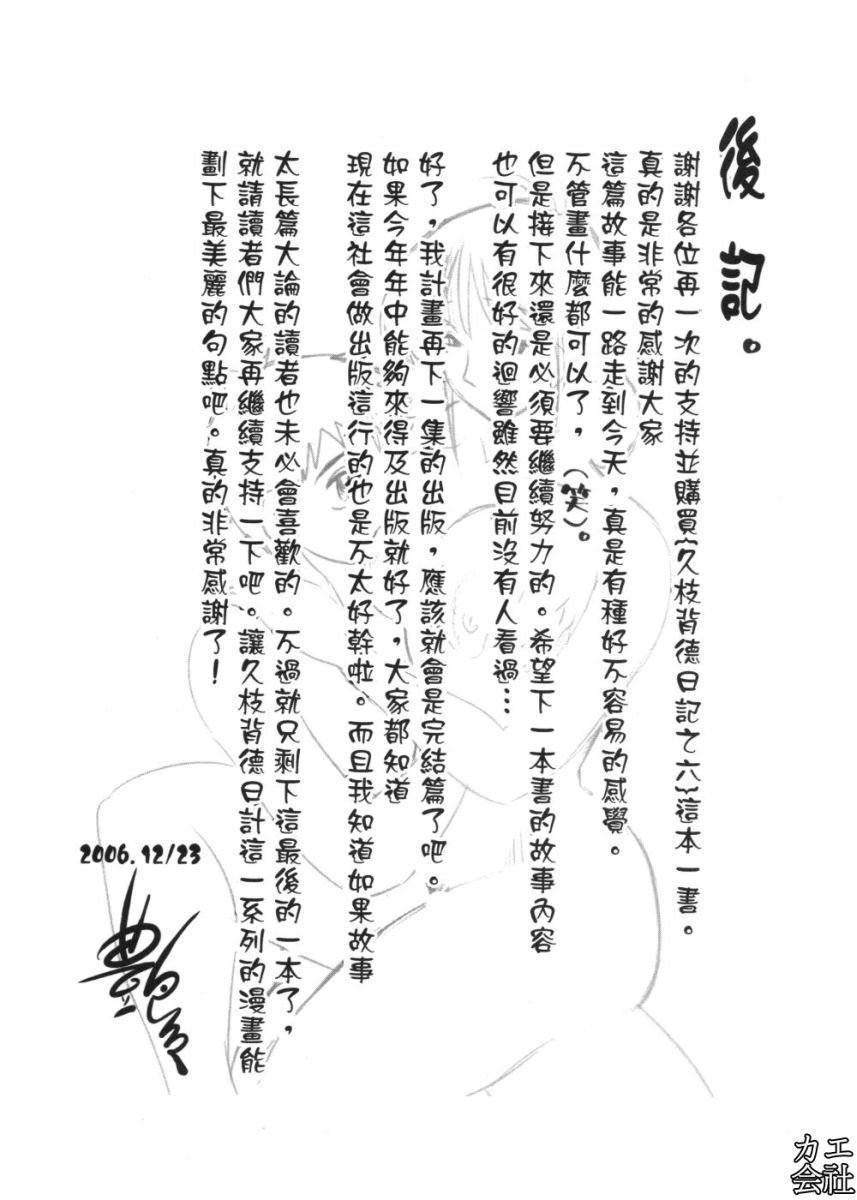 後記。
謝謝各位再一次的支持並購買︷久枝背德日記之六︸這本一書。
真的是非常的感謝大家
這篇故事能一路走到今天，真是有種好不容易的感覺。
不管畫什麼都可以了，（笑）。
但是接下來還是必須要繼續努力的。希望下一本書的故事內容
也可以有很好的迴響雖然目前沒有人看過…
好了，我計畫再下一集的出版，應該就會是完結篇了吧。
如果今年年中能夠來得及出版就好了，大家都知道
現在這社會做出版這行的也是不太好幹啦。而且我知道如果故事
太長篇大論的讀者也未必會喜歡的。不過就只剩下這最後的一本了，
就請讀者們大家再繼續支持一下吧。讓久枝背德日計這一系列的漫畫能
劃下最美麗的句點吧。真的非常感謝了！
2006.12/23
カエ
会社